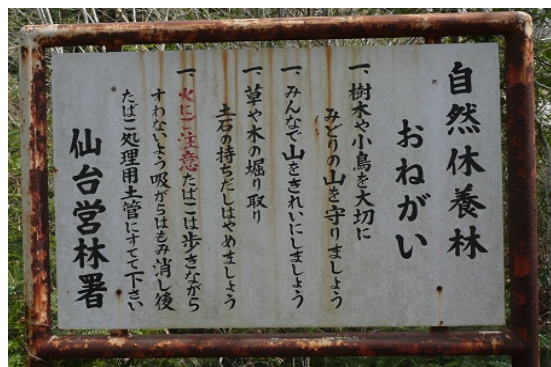 自然休養林
おねがい
一、樹木や小鳥を大切に
みどりの山を守りましょう
一、みんなで山をきれいにしましょう
一、草や木の堀り取り
土石の持ちだしはやめましょう
一、火にご注意たばこは歩きながら
すわないよう吸がらはもみ消し後
たばこ処理用土管にすてて下さい
仙台営林署